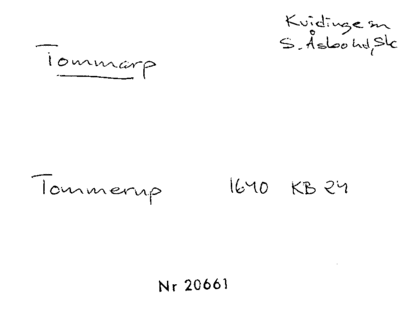 Kvidinge sn
S. Åsbo hd, Sk
Tommarp
Tommerup 1640 KB 24
Nr 20661